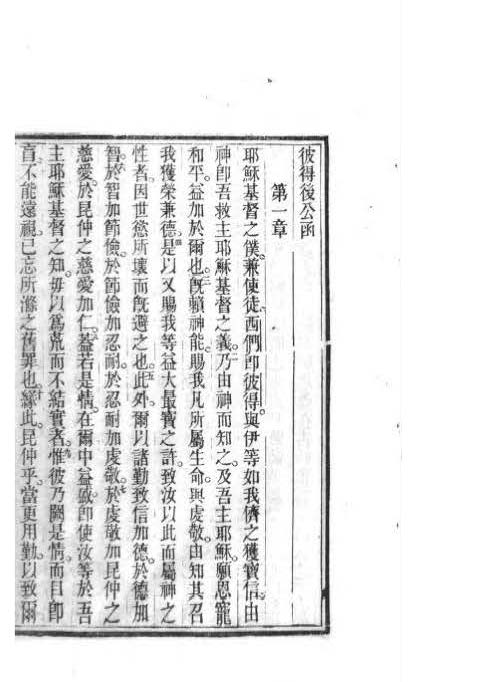 彼得後公函
第一章
耶穌基督之僕兼使徒西們即彼得與伊等如我儕之獲寶信由
神即吾救主耶穌基督之義乃由神而知之及吾主耶穌願恩寵
和平益加於爾也既賴神能賜我凡所屬生命與虔敬由知其召
我獲榮兼德是以又賜我等益大最寶之許致汝以此而屬神之
性者因世慾所壞而既避之也此外爾以諸勤致信加德於德加
智於智加節儉於節儉加忍耐於忍耐加虔敬於虔敬加昆仲之
慈愛於昆仲之慈愛加仁蓋若是情在爾中益盛即使汝等於吾
主耶穌基督之知毋以為荒而不結實者惟彼乃闕是情而目即
盲不能遠視已忘所滌之舊罪也緣此昆仲乎當更用勤以致爾